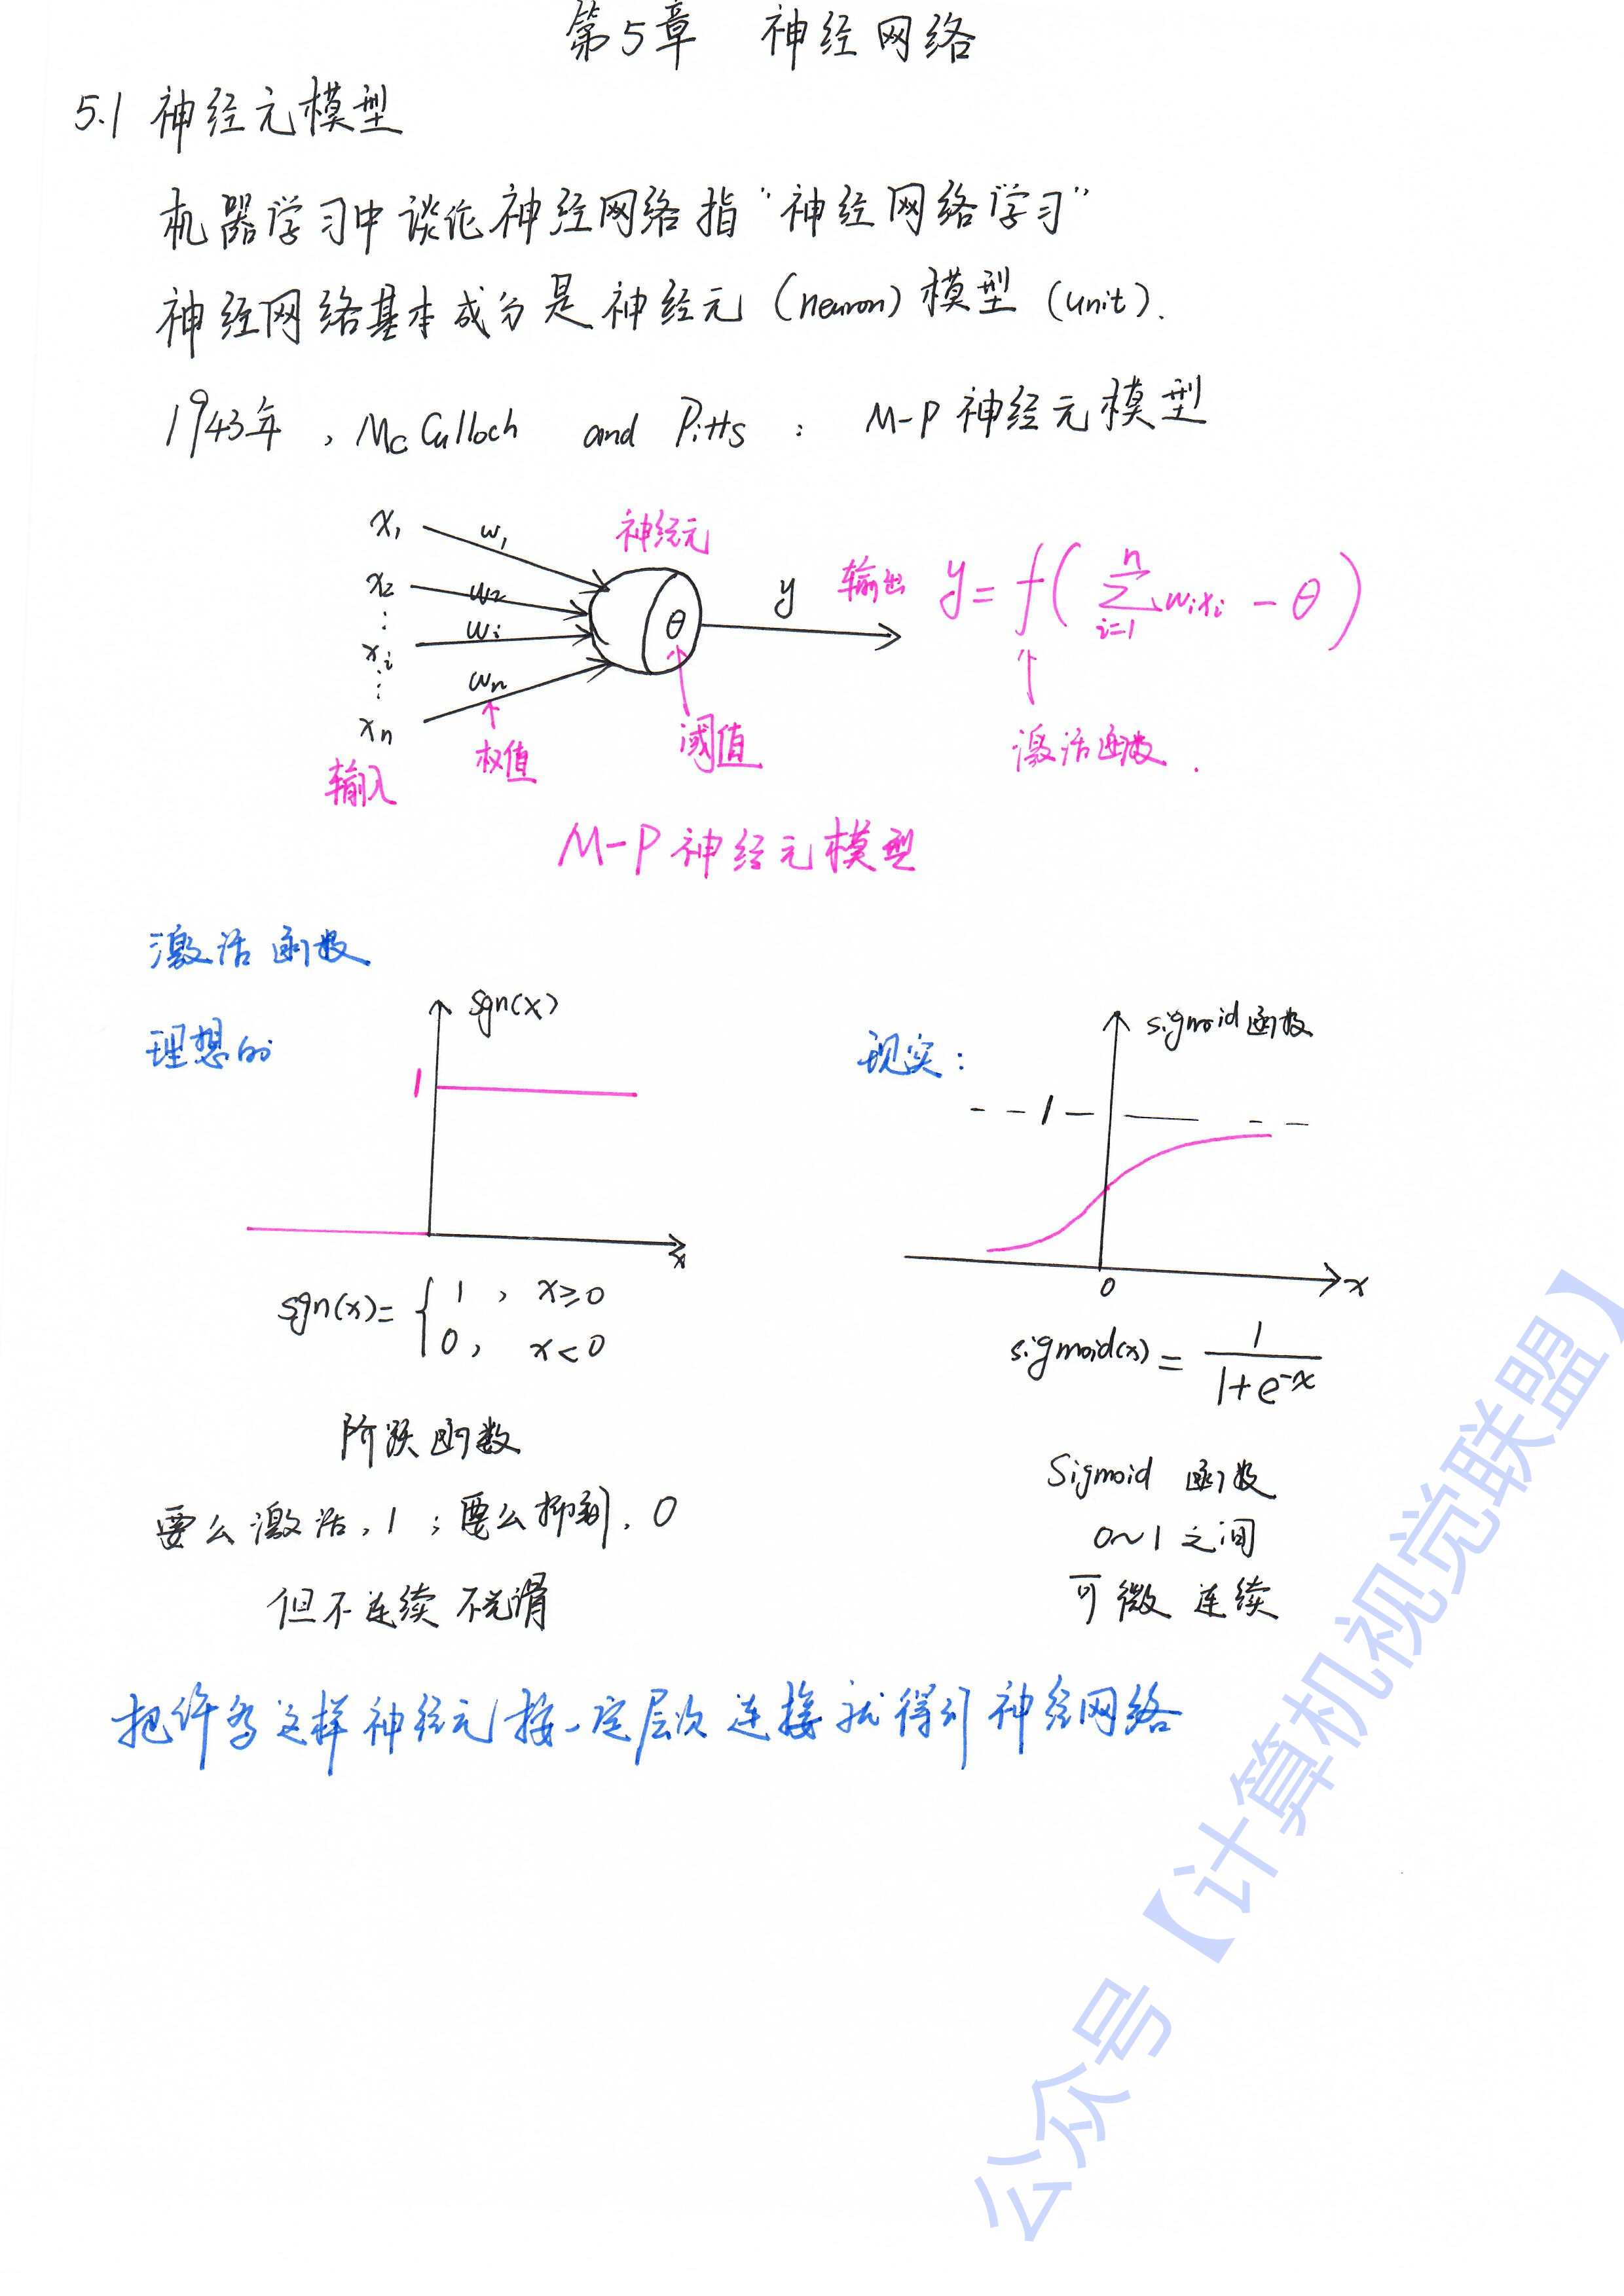 第5章 神经网络
5.1 神经元模型
机器学习中谈论神经网络指“神经网络学习”
神经网络基本成分是神经元(neuron)模型(unit).
1943年,McCulloch and Pitts: M-P神经元模型
x₁ w₁ 神经元
x₂ w₂ θ y 输出 y=f(∑ⁿᵢ₌₁wᵢxᵢ-θ)
⋮
xᵢ wᵢ
⋮
xₙ wₙ
输入 权值 阈值 激活函数.
M-P神经元模型
激活函数
理想的 sgn(x)
1
x
sgn(x)={1, x≥0
0, x<0
阶跃函数
要么激活,1;要么抑制,0
但不连续 不光滑
现实: sigmoid函数
1
0 x
sigmoid(x)=1/(1+e⁻ˣ)
Sigmoid 函数
0~1之间
可微 连续
把许多这样神经元按一定层次连接就得到神经网络
公众号【计算机视觉联盟】